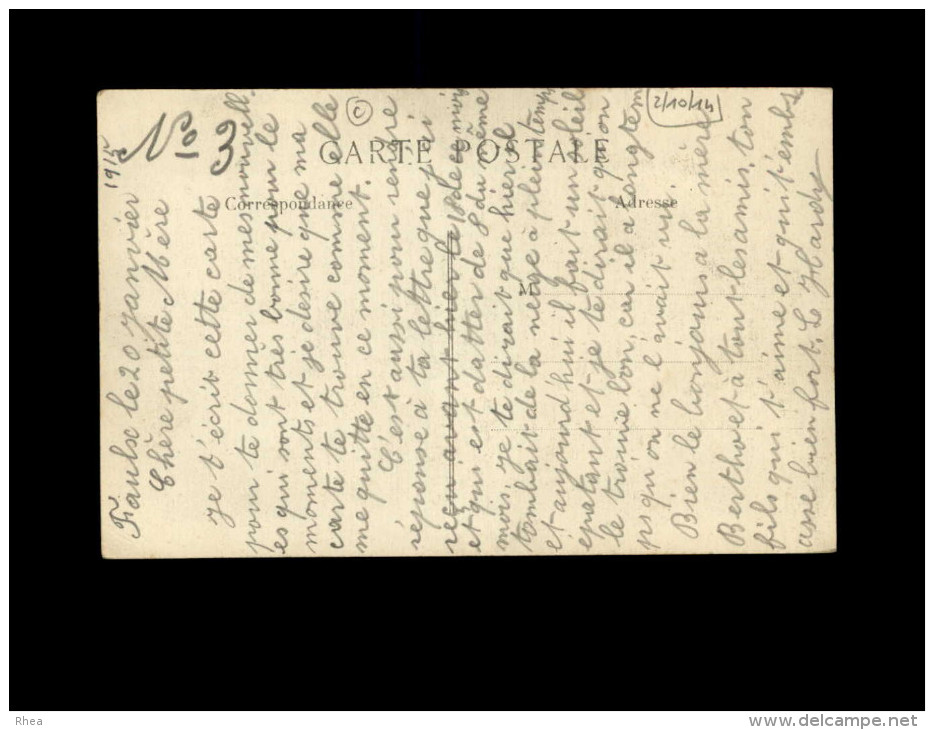 No 3
C
2/10/14
CARTE POSTALE
Correspondance
Adresse
M
Faulx le 20 janvier 1915
Chère petite Mère
je t'écrit cette carte
pour te donner de mes nouvell
es qui sont très bonne pour le
moments et je desire que ma
carte te trouve comme elle
me quitte en ce moment.
C'est aussi pour rendre
réponse à ta lettre que j'ai
reçu avant hier le 18 de ce mois
et qui est datter de 8 du même
mois, je te dirait que hier il
tombait de la neige à plein temps
et aujourd'hui il fait un soleil
epatant et je te dirait qu'on
le trouve bon, car il a longtem
ps qu'on ne l'avait vu.
Bien le bonjours a la mère
Bertho et à tout les amis, ton
fils qui t'aime et qui t'embr
asse bien fort. L Hardy
Rhea
www.delcampe.net